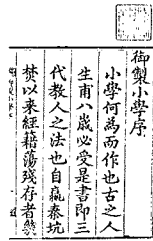 御製小學序
小學何為而作也古之人
生甫八歲必受是書即三
代教人之法也自嬴秦坑
焚以來經籍蕩殘存者幾